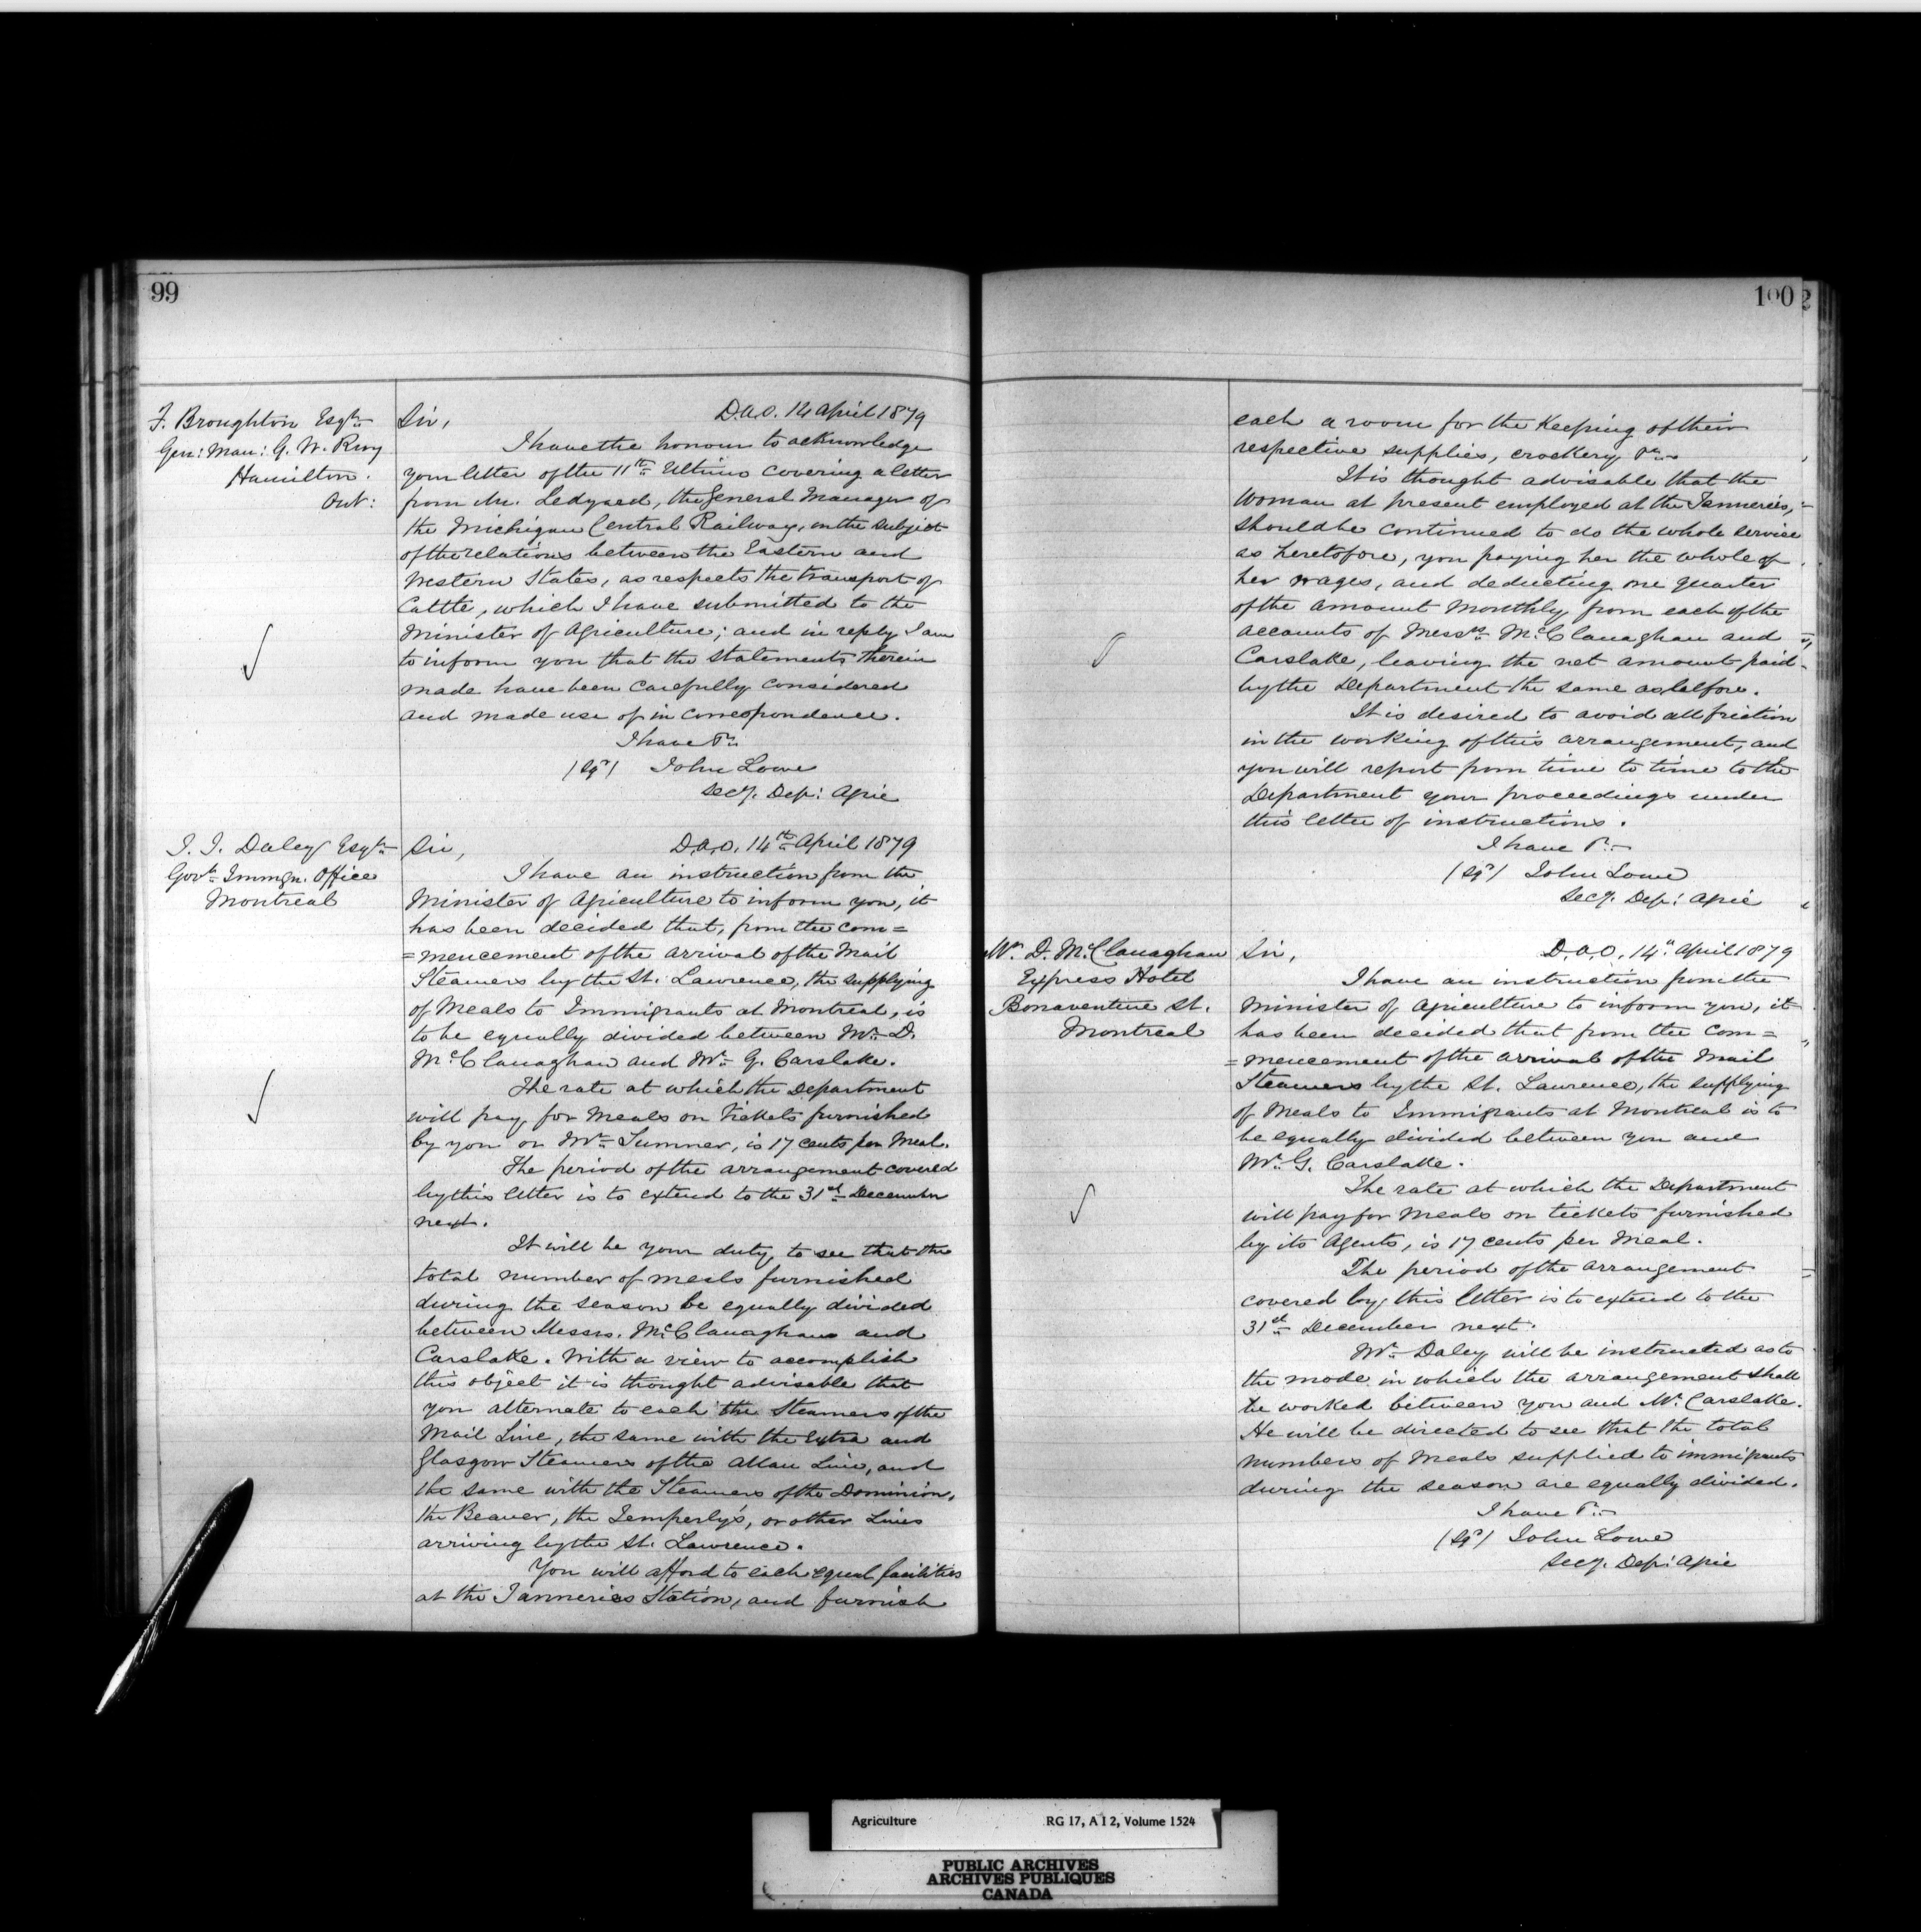 99
F. Broughton Esqre
Gen: Man: G. W. Rwy
Hamilton.
Ont:
Sir,
D.A.O. 14 April 1879
I have the honour to acknowledge
your letter of the 11th Ultimo covering a letter
from Mr. Ledyard, the General Manager of
the Michigan Central Railway, on the subject
of the relations between the Eastern and
Western States, as respects the transport of
Cattle, which I have submitted to the
Minister of Agriculture; and in reply I am
to inform you that the statements therein
made have been carefully considered
and made use of in correspondence.
I have &c.
(Sgd) John Lowe
Secy. Dep: Agric
J. J. Daley Esqre
Govt Immgn. Office
Montreal
Sir,
D.A.O. 14th April 1879
I have an instruction from the
Minister of Agriculture to inform you, it
has been decided that, from the com=
=mencement of the arrival of the Mail
Steamers by the St. Lawrence, the supplying
of Meals to Immigrants at Montreal, is
to be equally divided between Mr. D.
McClanaghan and Mr. G. Carslake.
The rate at which the Department
will pay for Meals on tickets furnished
by you or Mr. Sumner, is 17 cents per Meal.
The period of the arrangement covered
by this letter is to extend to the 31st December
next.
It will be your duty to see that the
total number of meals furnished
during the season be equally divided
between Messrs. McClanaghan and
Carslake. With a view to accomplish
this object it is thought advisable that
you alternate to each the Steamers of the
Mail Line, the same with the Extra and
Glasgow Steamers of the Allan Line, and
the same with the Steamers of the Dominion,
the Beaver, the Temperly's, or other Lines
arriving by the St. Lawrence.
You will afford to each equal facilities
at the Tanneries Station, and furnish
100
each a room for the Keeping of their
respective supplies, crockery &c.
It is thought advisable that the
woman at present employed at the Tanneries,
should be continued to do the whole service
as heretofore, you paying her the whole of
her wages, and deducting one quarter
of the amount Monthly from each of the
accounts of Messrs McClanaghan and
Carslake, leaving the net amount paid
by the Department the same as before.
It is desired to avoid all friction
in the working of this arrangement, and
you will report from time to time to the
Department your proceedings under
this letter of instructions.
I have &c.
(Sgd) John Lowe
Secy. Dep: Agric
Mr. D. McClanaghan
Express Hotel
Bonaventure St.
Montreal
Sir,
D.A.O. 14" April 1879
I have an instruction from the
Minister of Agriculture to inform you, it
has been decided that from the com=
=mencement of the arrival of the Mail
Steamers by the St. Lawrence, the supplying
of Meals to Immigrants at Montreal is to
be equally divided between you and
Mr. G. Carslake.
The rate at which the Department
will pay for Meals on tickets furnished
by its Agents, is 17 cents per Meal.
The period of the arrangement
covered by this letter is to extend to the
31st December next.
Mr. Daley will be instructed as to
the mode in which the arrangement shall
be worked between you and Mr. Carslake.
He will be directed to see that the total
numbers of Meals supplied to immigrants
during the season are equally divided.
I have &c.
(Sgd) John Lowe
Secy. Dep: Agric
Agriculture RG 17, A I 2, Volume 1524
PUBLIC ARCHIVES
ARCHIVES PUBLIQUES
CANADA